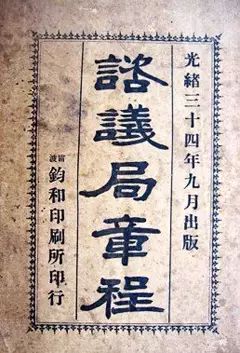 光緒三十四年九月出版
諮議局章程
寧波鈞和印刷所印行